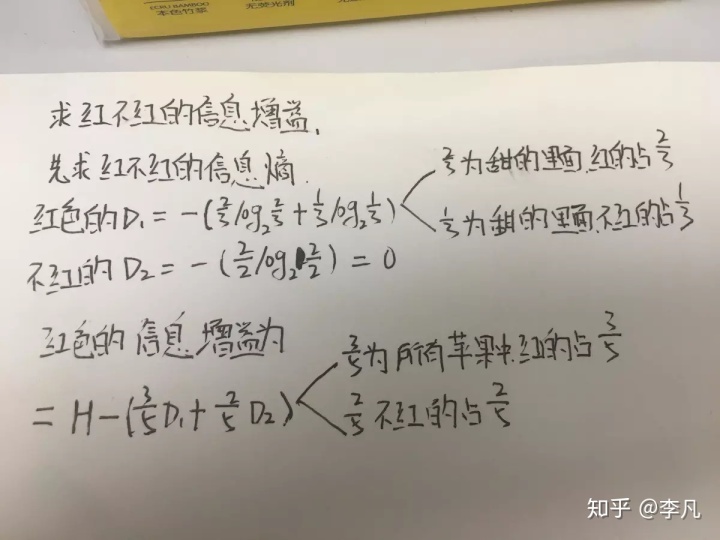 (ECRU BAMBOO)
本色竹浆
无荧光剂
求红不红的信息增益.
先求红不红的信息熵.
红色的D₁ = -(⅔log₂⅔ + ⅓log₂⅓)
⅔为甜的里面,红的占⅔
⅓为甜的里面,不红的占⅓
不红的D₂ = -(2/2 log₂ 2/2) = 0
红色的信息增益为
= H-(⅗D₁ + ⅖D₂)
⅗为所有苹果中红的占⅗
⅖不红的占⅖
知乎 @李凡